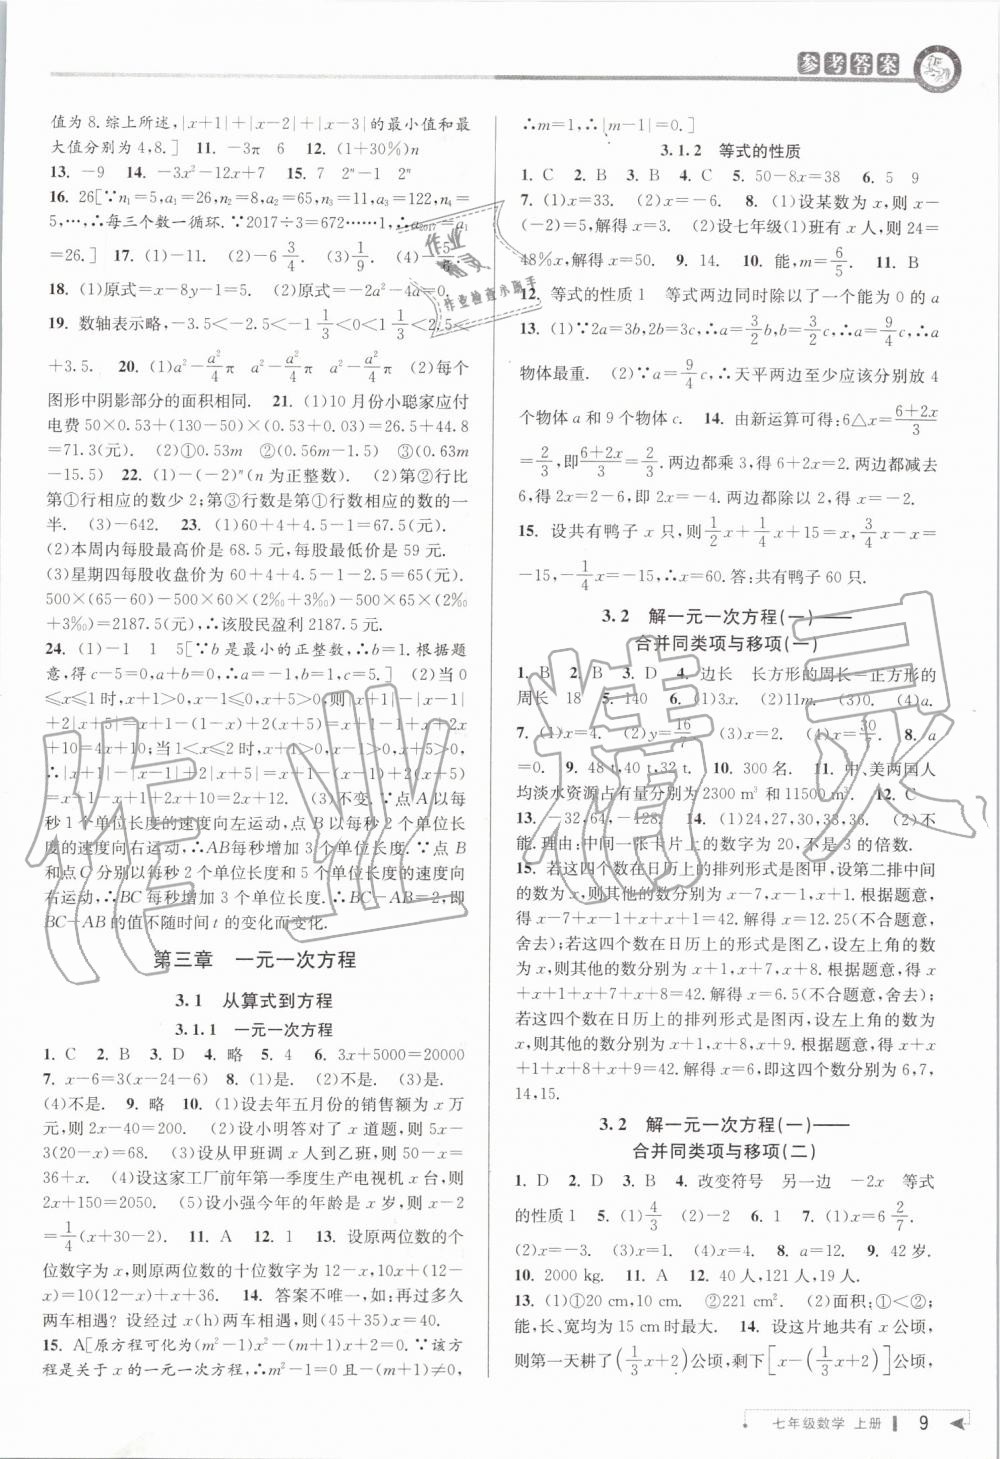 参考答案
值为 8. 综上所述,|x+1|+|x-2|+|x-3|的最小值和最
大值分别为 4,8.] 11. -3π 6 12. (1+30%)n
13. -9 14. -3x²-12x+7 15. 7 2ⁿ-1 2ⁿ
16. 26[∵n₁=5,a₁=26,n₂=8,a₂=65,n₃=11,a₃=122,n₄=
5,…,∴每三个数一循环.∵2017÷3=672……1,∴a₂₀₁₇=a₁
=26.] 17. (1)-11. (2)-6 3/4. (3)1/9. (4)-5/6.
18. (1)原式=x-8y-1=5. (2)原式=-2a²-4a=0.
19. 数轴表示略,-3.5<-2.5<-1 1/3<0<1 1/3<2.5<
+3.5. 20. (1)a²-a²/4 π a²-a²/4 π a²-a²/4 π (2)每个
图形中阴影部分的面积相同. 21. (1)10 月份小聪家应付
电费 50×0.53+(130-50)×(0.53+0.03)=26.5+44.8
=71.3(元). (2)①0.53m ②(0.56m-1.5) ③(0.63m
-15.5) 22. (1)-(-2)ⁿ(n 为正整数). (2)第②行比
第①行相应的数少 2;第③行数是第①行相应的数的一
半. (3)-642. 23. (1)60+4+4.5-1=67.5(元).
(2)本周内每股最高价是 68.5 元,最低价是 59 元.
(3)星期四每股收盘价为 60+4+4.5-1-2.5=65(元).
500×(65-60)-500×60×(2‰+3‰)-500×65×(2‰
+3‰)=2187.5(元),∴该股民盈利 2187.5 元.
24. (1)-1 1 5[∵b 是最小的正整数,∴b=1.根据题
意,得 c-5=0,a+b=0,∴a=-1,b=1,c=5.] (2)当 0
≤x≤1 时,x+1>0,x-1≤0,x+5>0,则|x+1|-|x-1|
+2|x+5|=x+1-(1-x)+2(x+5)=x+1-1+x+2x
+10=4x+10;当 1<x≤2 时,x+1>0,x-1>0,x+5>0,
∴|x+1|-|x-1|+2|x+5|=x+1-(x-1)+2(x+5)=
x+1-x+1+2x+10=2x+12. (3)不变.∵点 A 以每
秒 1 个单位长度的速度向左运动,点 B 以每秒 2 个单位长
度的速度向右运动,∴AB每秒增加 3 个单位长度.∵点 B
和点 C 分别以每秒 2 个单位长度和 5 个单位长度的速度向
右运动,∴BC 每秒增加 3 个单位长度.∴BC-AB=2,即
BC-AB 的值不随时间 t 的变化而变化.
第三章 一元一次方程
3.1 从算式到方程
3.1.1 一元一次方程
1. C 2. B 3. D 4. 略 5. 4 6. 3x+5000=20000
7. x-6=3(x-24-6) 8. (1)是. (2)不是. (3)是.
(4)不是. 9. 略 10. (1)设去年五月份的销售额为 x 万
元,则 2x-40=200. (2)设小明答对了 x 道题,则 5x-
3(20-x)=68. (3)设从甲班调 x 人到乙班,则 50-x=
36+x. (4)设这家工厂前年第一季度生产电视机 x 台,则
2x+150=2050. (5)设小强今年的年龄是 x 岁,则 x-2
=1/4(x+30-2). 11. A 12. 1 13. 设原两位数的个
位数字为 x,则原两位数的十位数字为 12-x,10x+(12-
x)=10(12-x)+x+36. 14. 答案不唯一,如:再过多久
两车相遇? 设经过 x(h)两车相遇,则(45+35)x=40.
15. A[原方程可化为(m²-1)x²-(m+1)x+2=0.∵该
方程是关于 x 的一元一次方程,∴m²-1=0,-(m+1)≠0,
∴m=1,∴|m-1|=0.]
3.1.2 等式的性质
1. C 2. B 3. C 4. B 5. 50-8x=38 6. 5 9
7. (1)x=33. (2)x=9. 8. (1)设某数为 x,则 x-
(-2)=5,解得 x=3. (2)设七年级(1)班有 x 人,则 24=
48%x,解得 x=50. 9. 14. 10. 能,m=6/5. 11. B
12. 等式的性质 1 等式两边同时除以了一个能为 0 的 a
13. (1)∵2a=3b,2b=3c,∴a=3/2 b,b=3/2 c,∴a=9/4 c,∴a
物体最重. (2)∵a=9/4 c,∴天平两边至少应该分别放 4
个物体 a 和 9 个物体 c. 14. 由新运算可得:6△x=(6+2x)/3
=2/3,即(6+2x)/3=2/3.两边都乘 3,得 6+2x=2.两边都减去
6,得 2x=2-6,即 2x=-4.两边都除以 2,得 x=-2.
15. 设共有鸭子 x 只,则 1/2 x+1/4 x+15=x,3/4 x-x=
-15,-1/4 x=-15,∴x=60.答:共有鸭子 60 只.
3.2 解一元一次方程(一)——
合并同类项与移项(一)
1. B 2. B 3. D 4. 边长 长方形的周长=正方形的
周长 18 5. 140 6. (1)3x. (2)11m. (3)0. (4)a.
7. (1)x=4. (2)y=16/7. (3)x=2. (4)x=30/7. 8. a
=0. 9. 48 t,40 t,32 t. 10. 300 名. 11. 中、美两国人
均淡水资源占有量分别为 2300 m³ 和 11500 m³. 12. C
13. -32,64,-128. 14. (1)24,27,30,33,36. (2)不
能.理由:中间一张卡片上的数字为 20,不是 3 的倍数.
15. 若这四个数在日历上的排列形式是图甲,设第二排中间
的数为 x,则其他的数分别为 x-7,x-1,x+1.根据题意,
得 x-7+x-1+x+1+x=42.解得 x=12.25(不合题意,
舍去);若这四个数在日历上的形式是图乙,设左上角的数
为 x,则其他的数分别为 x+1,x+7,x+8.根据题意,得 x
+x+1+x+7+x+8=42.解得 x=6.5(不合题意,舍去);
若这四个数在日历上的排列形式是图丙,设左上角的数为
x,则其他的数分别为 x+1,x+8,x+9.根据题意,得 x+x
+1+x+8+x+9=42.解得 x=6.故这四个数分别为 6,7,
14,15.
3.2 解一元一次方程(一)——
合并同类项与移项(二)
1. D 2. B 3. B 4. 改变符号 另一边 -2x 等式
的性质 1 5. (1)4/3 (2)-2 6. 1 7. (1)x=6 2/7.
(2)x=-3. (3)x=-4. 8. a=12. 9. 42 岁.
10. 2000 kg. 11. A 12. 40 人,121 人,19 人.
13. (1)①20 cm,10 cm. ②221 cm². (2)面积:①<②;
能,长、宽均为 15 cm 时最大. 14. 设这片地共有 x 公顷,
则第一天耕了(1/3 x+2)公顷,剩下[x-(1/3 x+2)]公顷,
七年级数学 上册 9
作业精灵
作业检查小助手
作业精灵